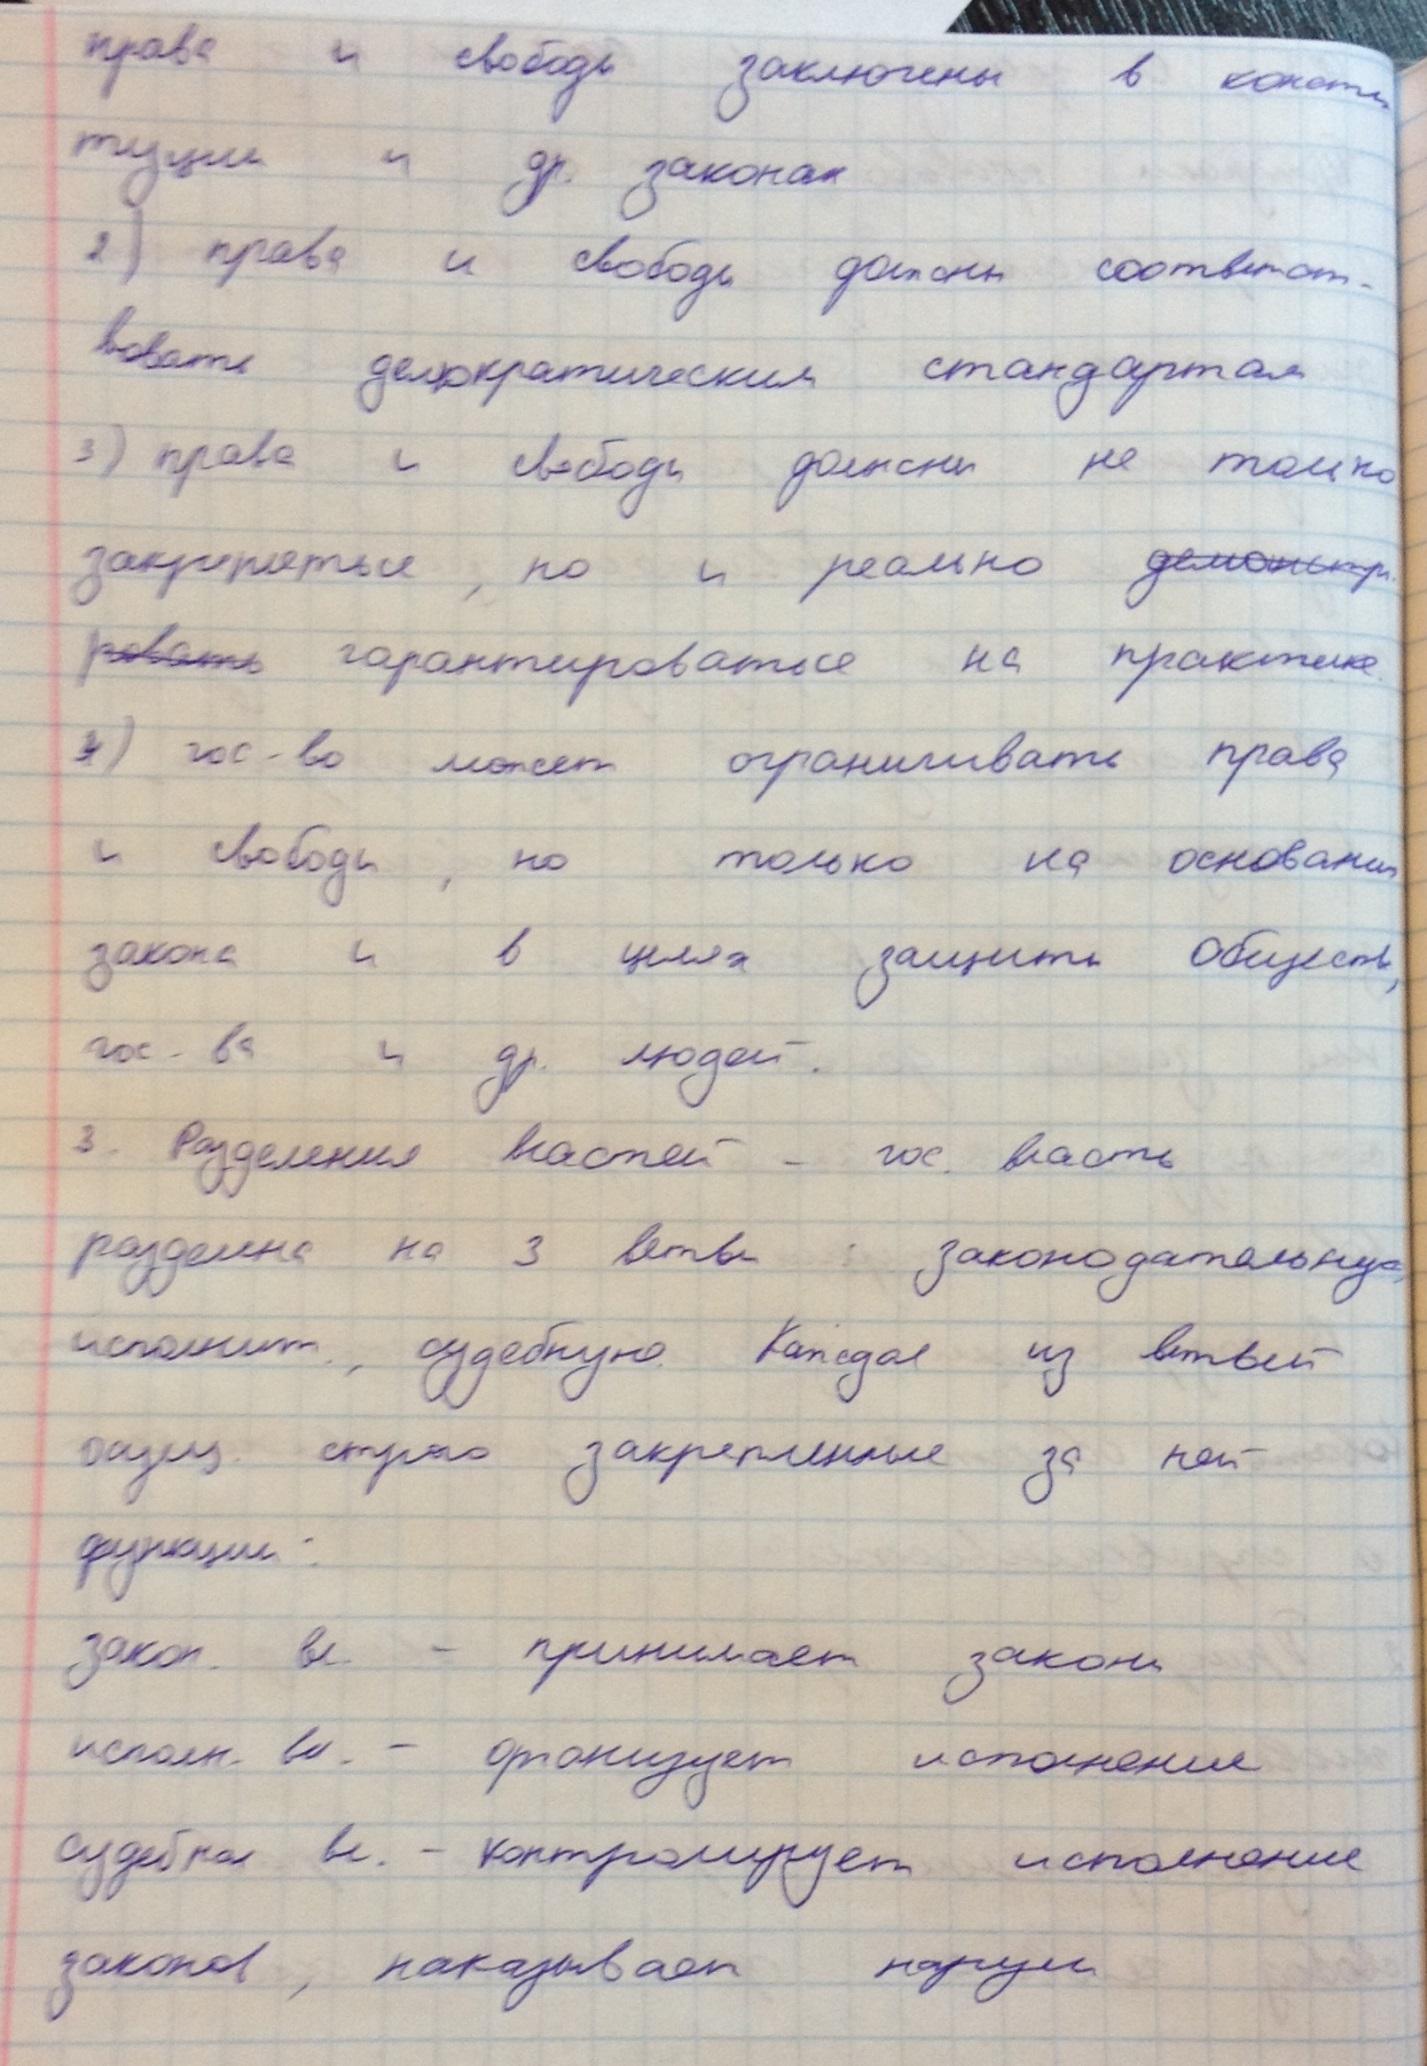 права и свободы заключены в консти
туции и др. законах
2) права и свободы должны соответст-
вовать демократическим стандартам
3) права и свободы должны не только
закрепляться, но и реально демонстри
ровать гарантироваться на практике.
4) гос-во может ограничивать права
и свободы, но только на основании
закона и в целях защиты обществ,
гос-ва и др. людей.
3. Разделения властей - гос. власть
разделена на 3 ветви : законодательную,
исполнит., судебную. Каждая из ветвей
осущ. строго закрепленные за ней
функции:
закон. вл. - принимает законы
исполн. вл. - организует исполнение
судебная вл. - контролирует исполнение
законов, наказывает наруш